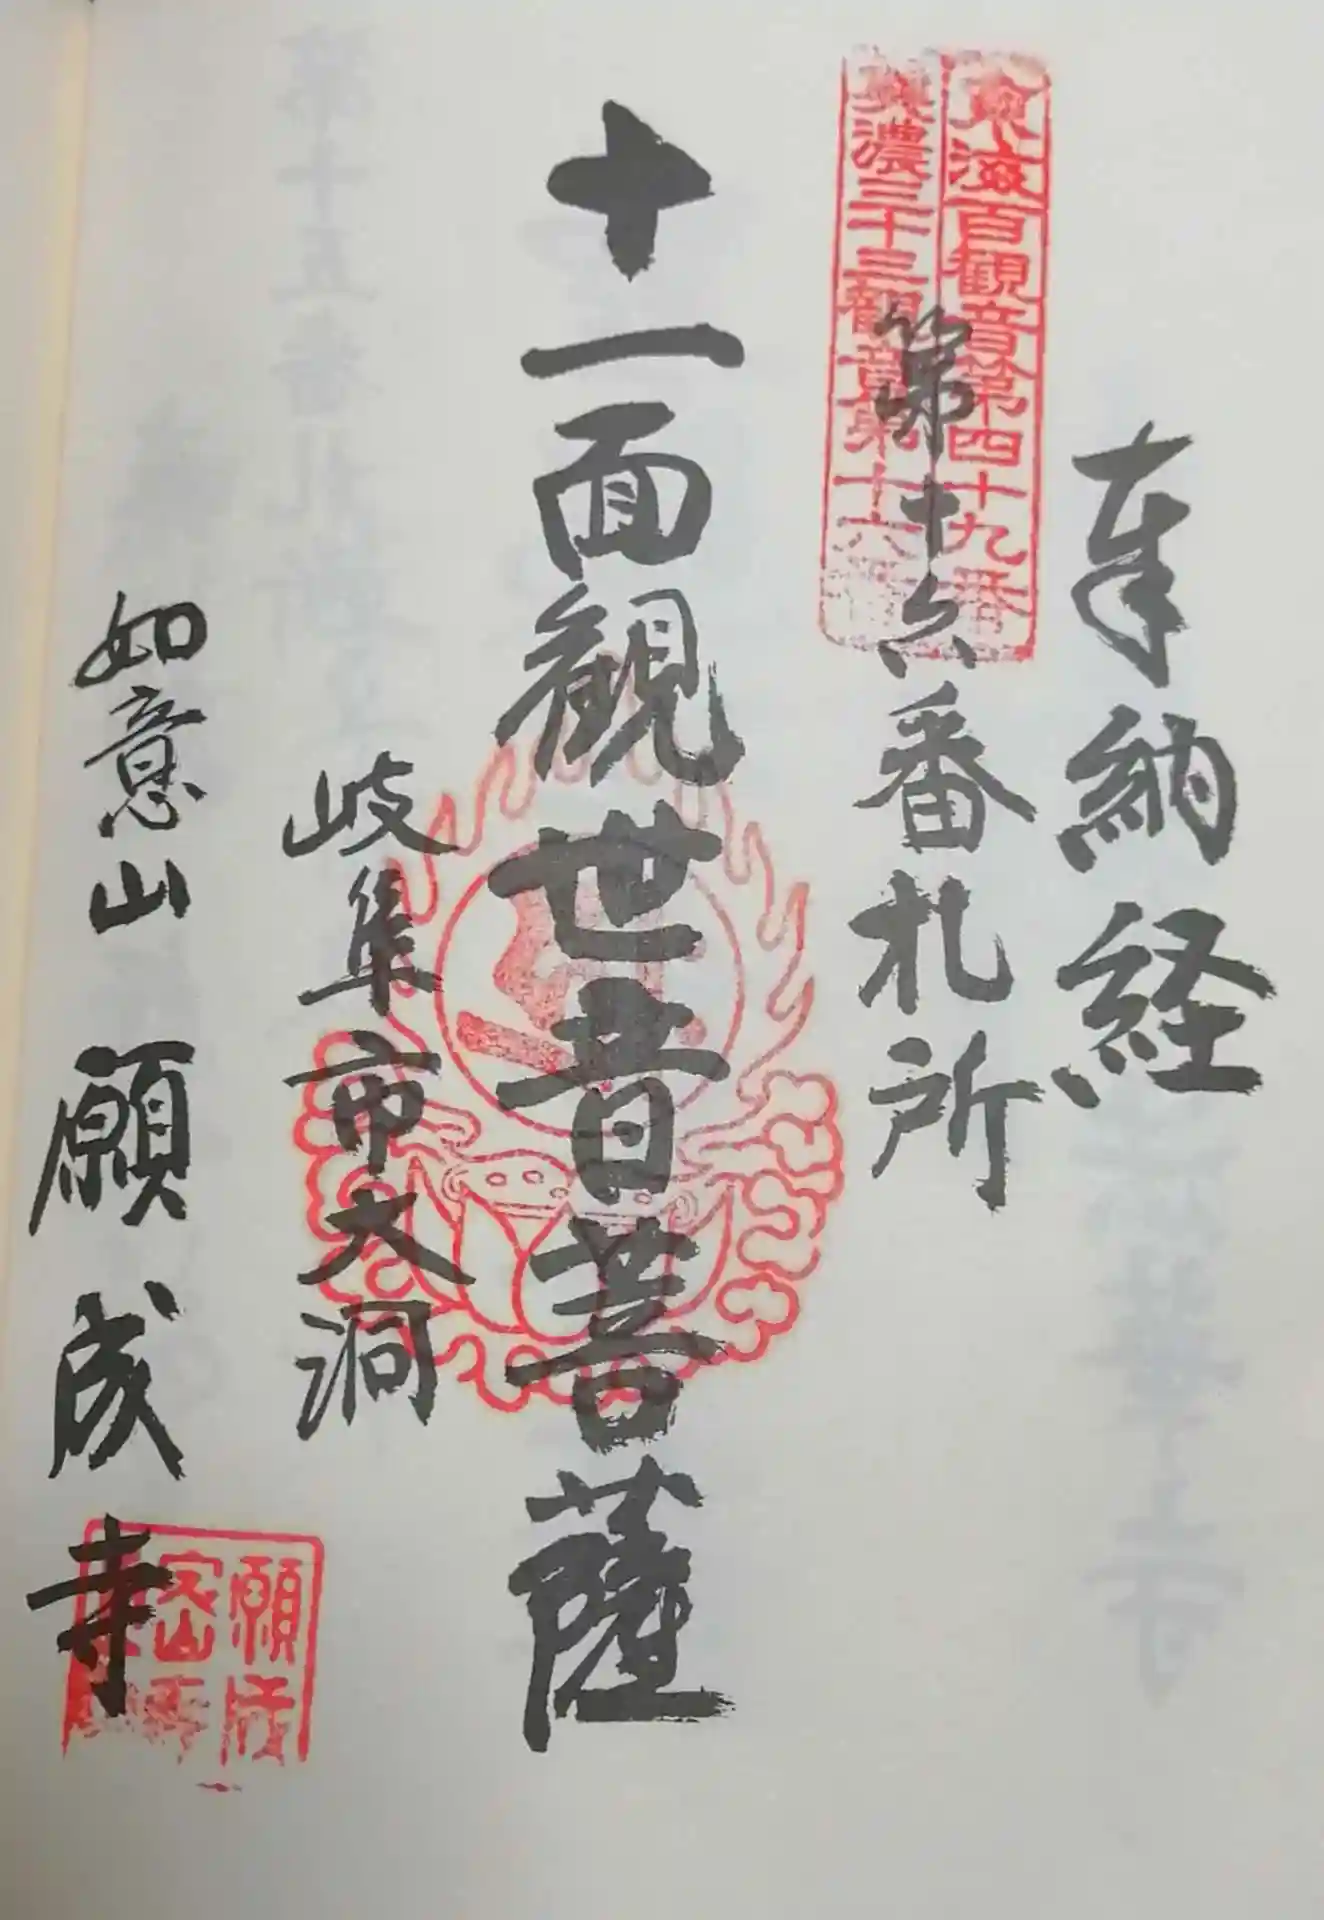 奉納経
東海百観音第四十九番
美濃三十三観音第十六番
第十六番札所
十一面観世音菩薩
岐阜市大洞
如意山 願成寺
願成